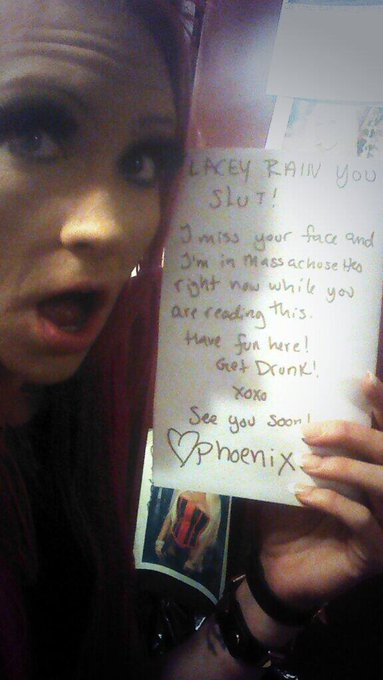 LACEY RAIN YOU
SLUT!
I miss your face and
I'm in Massachosettes
right now while you
are reading this.
Have fun here!
Get Drunk!
xoxo
See you soon!
♡Phoenix